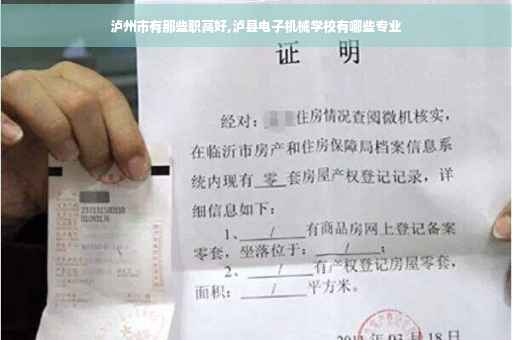 泸州市有那些职高好,泸县电子机械学校有哪些专业
证 明
经对：住房情况查阅微机核实，
在临沂市房产和住房保障局档案信息系
统内现有 零 套房屋产权登记记录，详
细信息如下：
1、 / 有商品房网上登记备案
零套，坐落位于： / ；
2、 / 有产权登记房屋零套，
面积： / 平方米。